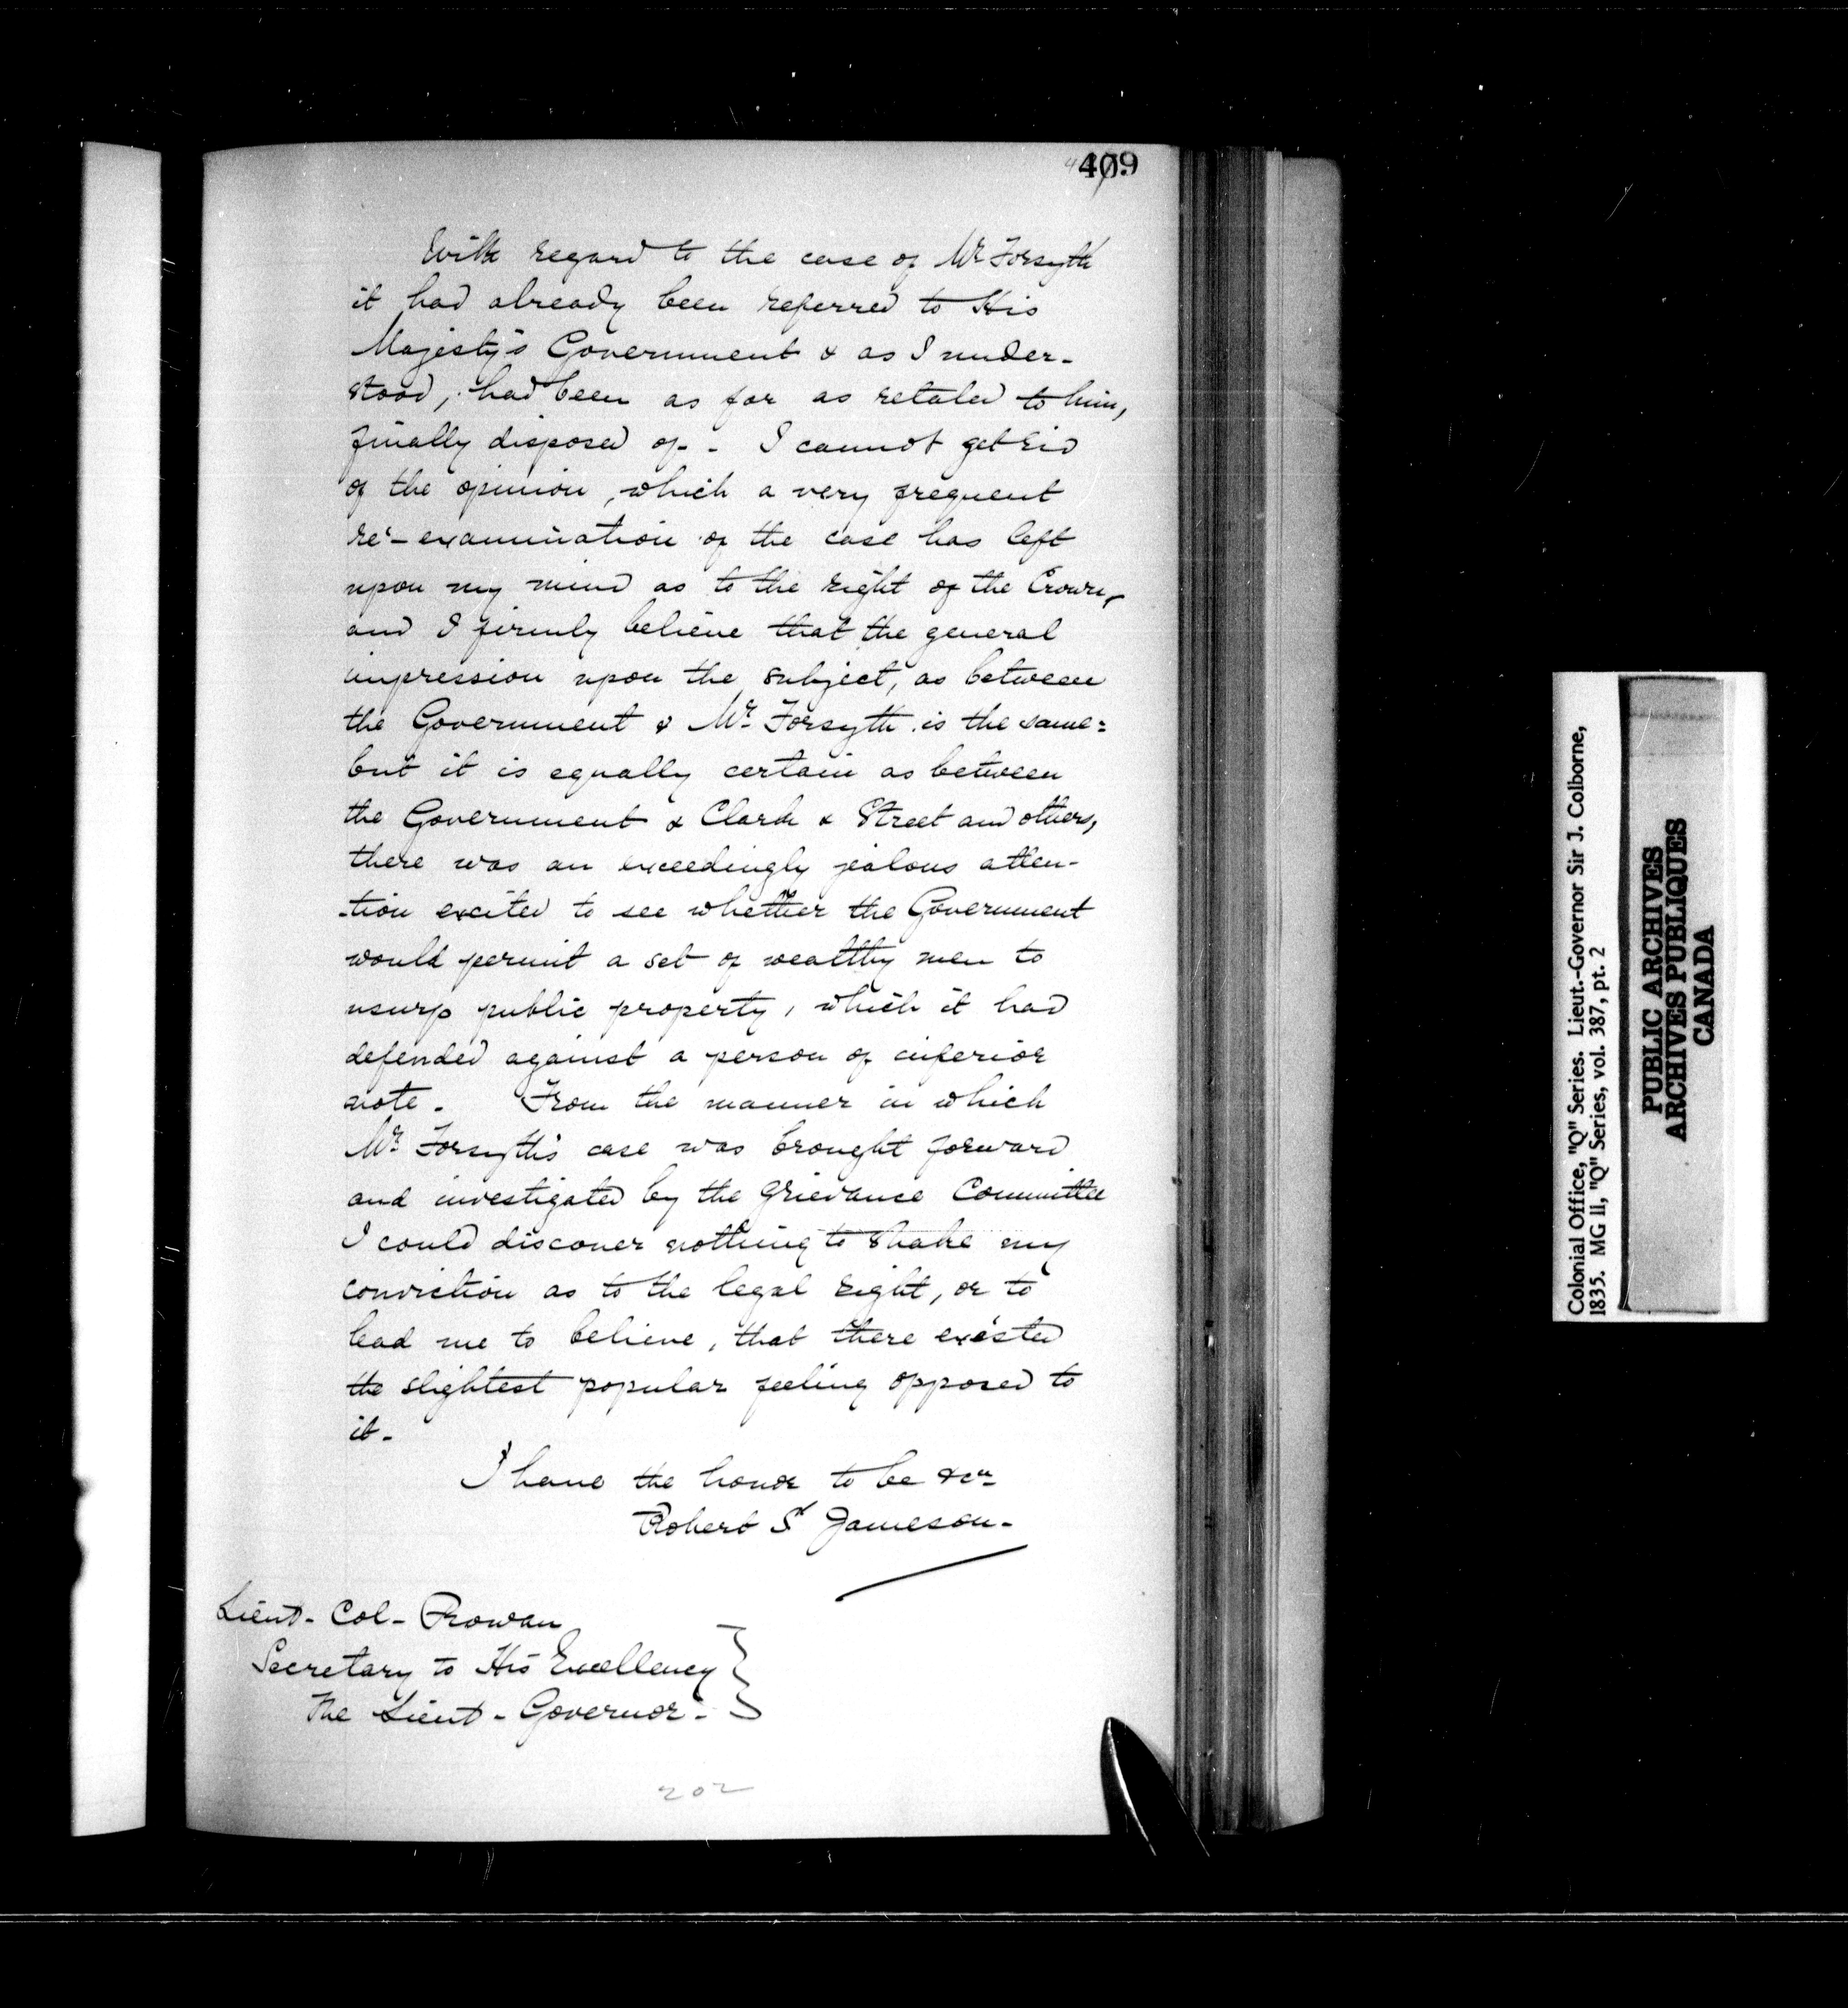 409
With regard to the case of Mr Forsyth
it had already been referred to His
Majesty's Government & as I under-
stood, had been as far as retaled to him,
finally disposed of - I cannot get rid
of the opinion, which a very frequent
re'-examination of the case has left
upon my mind as to the right of the Crown,
and I firmly believe that the general
impression upon the subject, as between
the Government & Mr. Forsyth is the same:
but it is equally certain as between
the Government & Clark & Street and others,
there was an exceedingly jealous atten-
-tion excited to see whether the Government
would permit a set of wealthy men to
usurp public property, which it had
defended against a person of inferior
note - From the manner in which
Mr. Forsyth's case was brought forward
and investigated by the Grievance Committee
I could discover nothing to shake my
conviction as to the legal right, or to
lead me to believe, that there existed
the slightest popular feeling opposed to
it -
I have the honor to be &ca
Robert S. Jameson -
Lieut - Col - Rowan
Secretary to His Excellency
The Lieut - Governor -
202
Colonial Office, "Q" Series. Lieut.-Governor Sir J. Colborne,
1835. MG 11, "Q" Series, vol. 387, pt. 2
PUBLIC ARCHIVES
ARCHIVES PUBLIQUES
CANADA